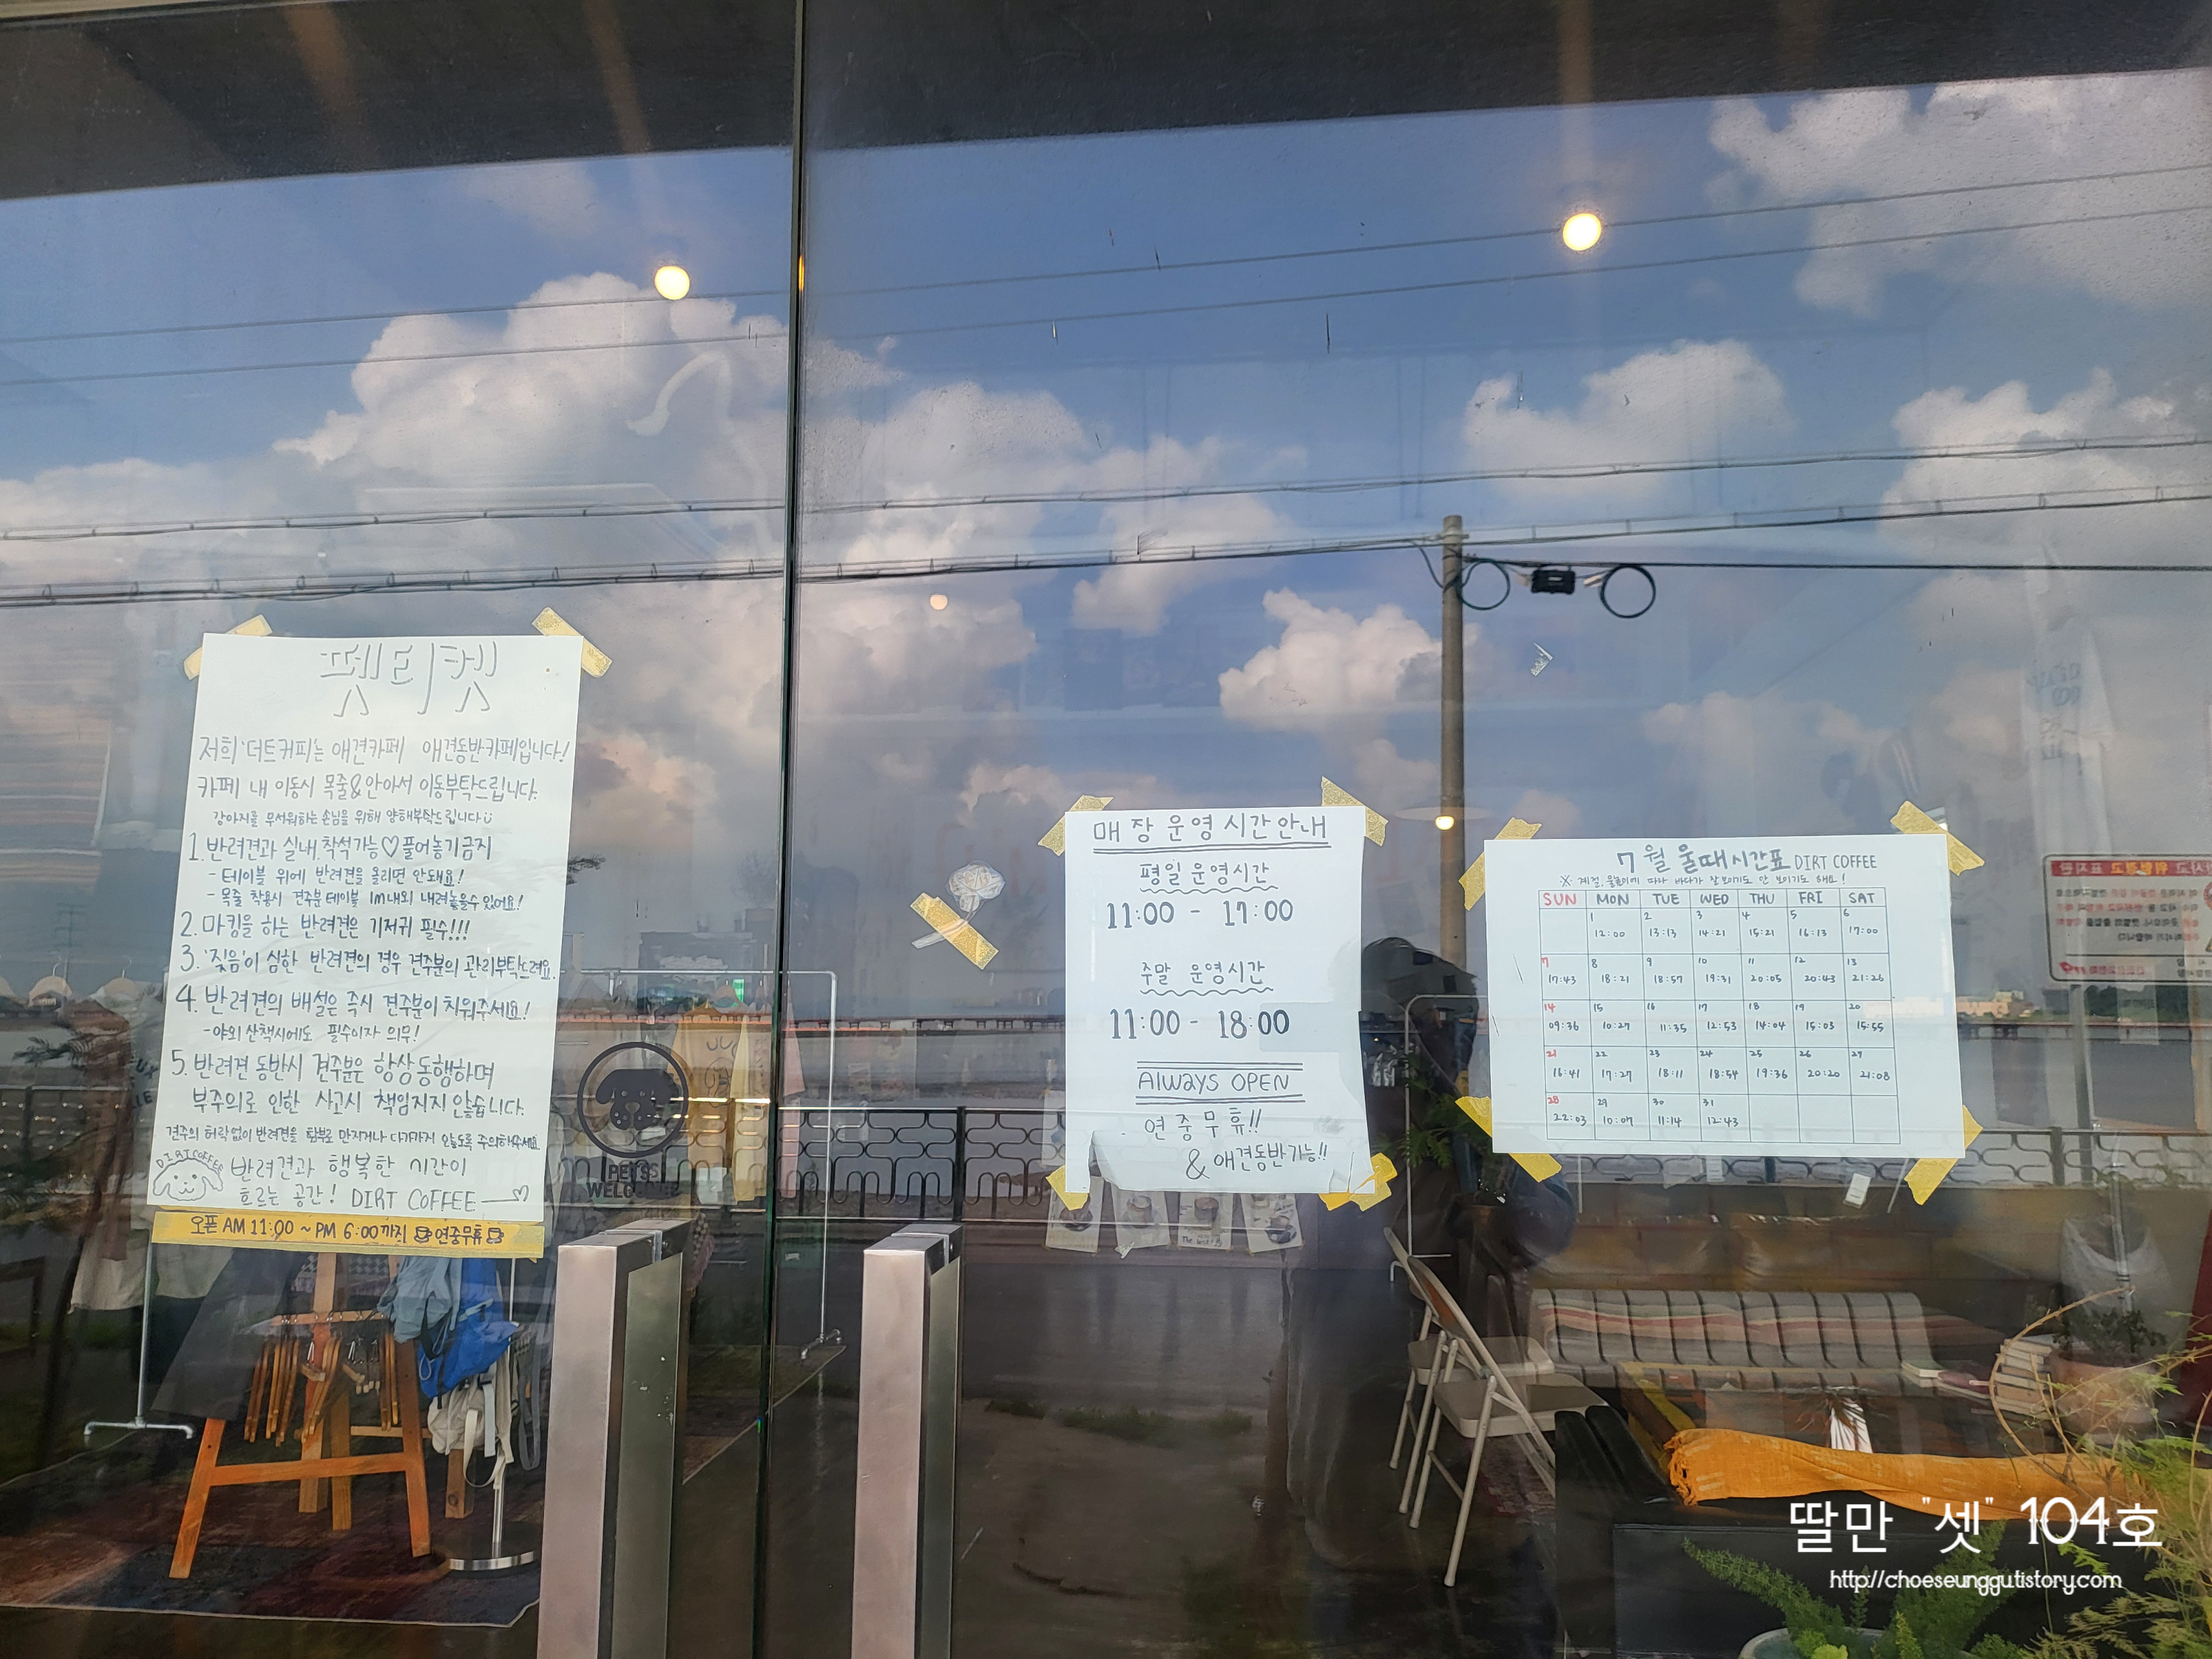 펫티켓
저희 '더트커피'는 애견카페 애견동반카페입니다!
카페 내 이동시 목줄&안아서 이동부탁드립니다.
강아지를 무서워하는 손님을 위해 양해부탁드립니다
1. 반려견과 실내 착석가능♡풀어놓기금지
- 테이블 위에 반려견을 올리면 안돼요!
- 목줄 착용시 견주분 테이블 1m내외 내려놓을수 있어요!
2. 마킹을 하는 반려견은 기저귀 필수!!!
3. '짖음'이 심한 반려견의 경우 견주분의 관리부탁드려요.
4. 반려견의 배설은 즉시 견주분이 치워주세요!
- 야외 산책시에도 필수이자 의무!
5. 반려견 동반시 견주분은 항상 동행하며
부주의로 인한 사고시 책임지지 않습니다.
견주의 허락없이 반려견을 함부로 만지거나 다가가지 않도록 주의해주세요
DIRT COFFEE
반려견과 행복한 시간이
흐르는 공간! DIRT COFFEE
오픈 AM 11:00 ~ PM 6:00까지 연중무휴
PETS
WELCOME
매장운영시간안내
평일 운영시간
11:00 - 17:00
주말 운영시간
11:00 - 18:00
Always OPEN
연중무휴!!
& 애견동반가능!!
7월 물때시간표 DIRT COFFEE
※ 계절, 물높이에 따라 바다가 잘 보이기도 안 보이기도 해요!
SUN MON TUE WED THU FRI SAT
1 2 3 4 5 6
12:00 13:13 14:21 15:21 16:13 17:00
7 8 9 10 11 12 13
17:43 18:21 18:57 19:31 20:05 20:43 21:26
14 15 16 17 18 19 20
09:36 10:27 11:35 12:53 14:04 15:03 15:55
21 22 23 24 25 26 27
16:41 17:27 18:11 18:54 19:36 20:20 21:08
28 29 30 31
22:03 10:07 11:14 12:43
딸만 "셋" 104호
http://choeseunggutistory.com